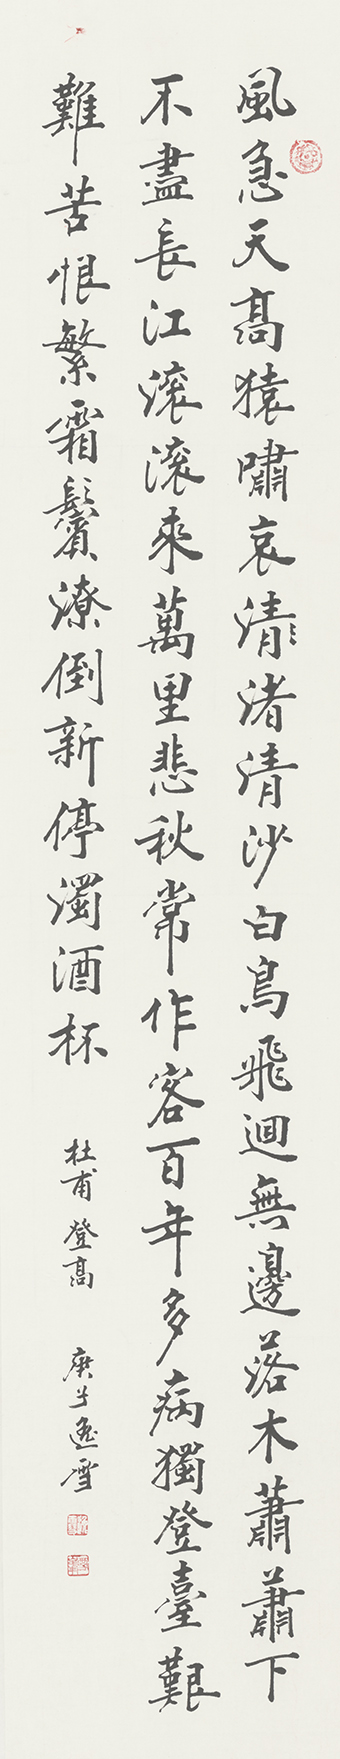 風急天髙猿嘯哀清渚清沙白鳥飛迴無邊落木蕭蕭下
不盡長江滚滚來萬里悲秋常作客百年多病獨登臺艱
難苦恨繁霜鬢潦倒新停濁酒杯 杜甫 登髙 庚子逸雪